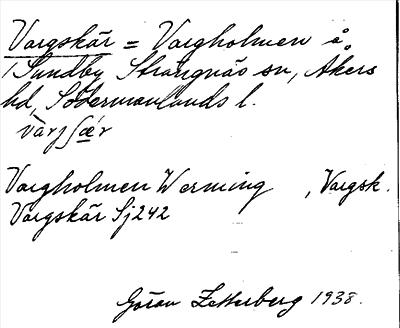 Vargskär = Vargholmen å
Sundby, Strängnäs sn, Åkers
hd, Södermanlands l.
várjʃæ̀r
Vargholmen Werming , Vargsk.
Vargskär Sj242
Göran Zetterberg 1938.